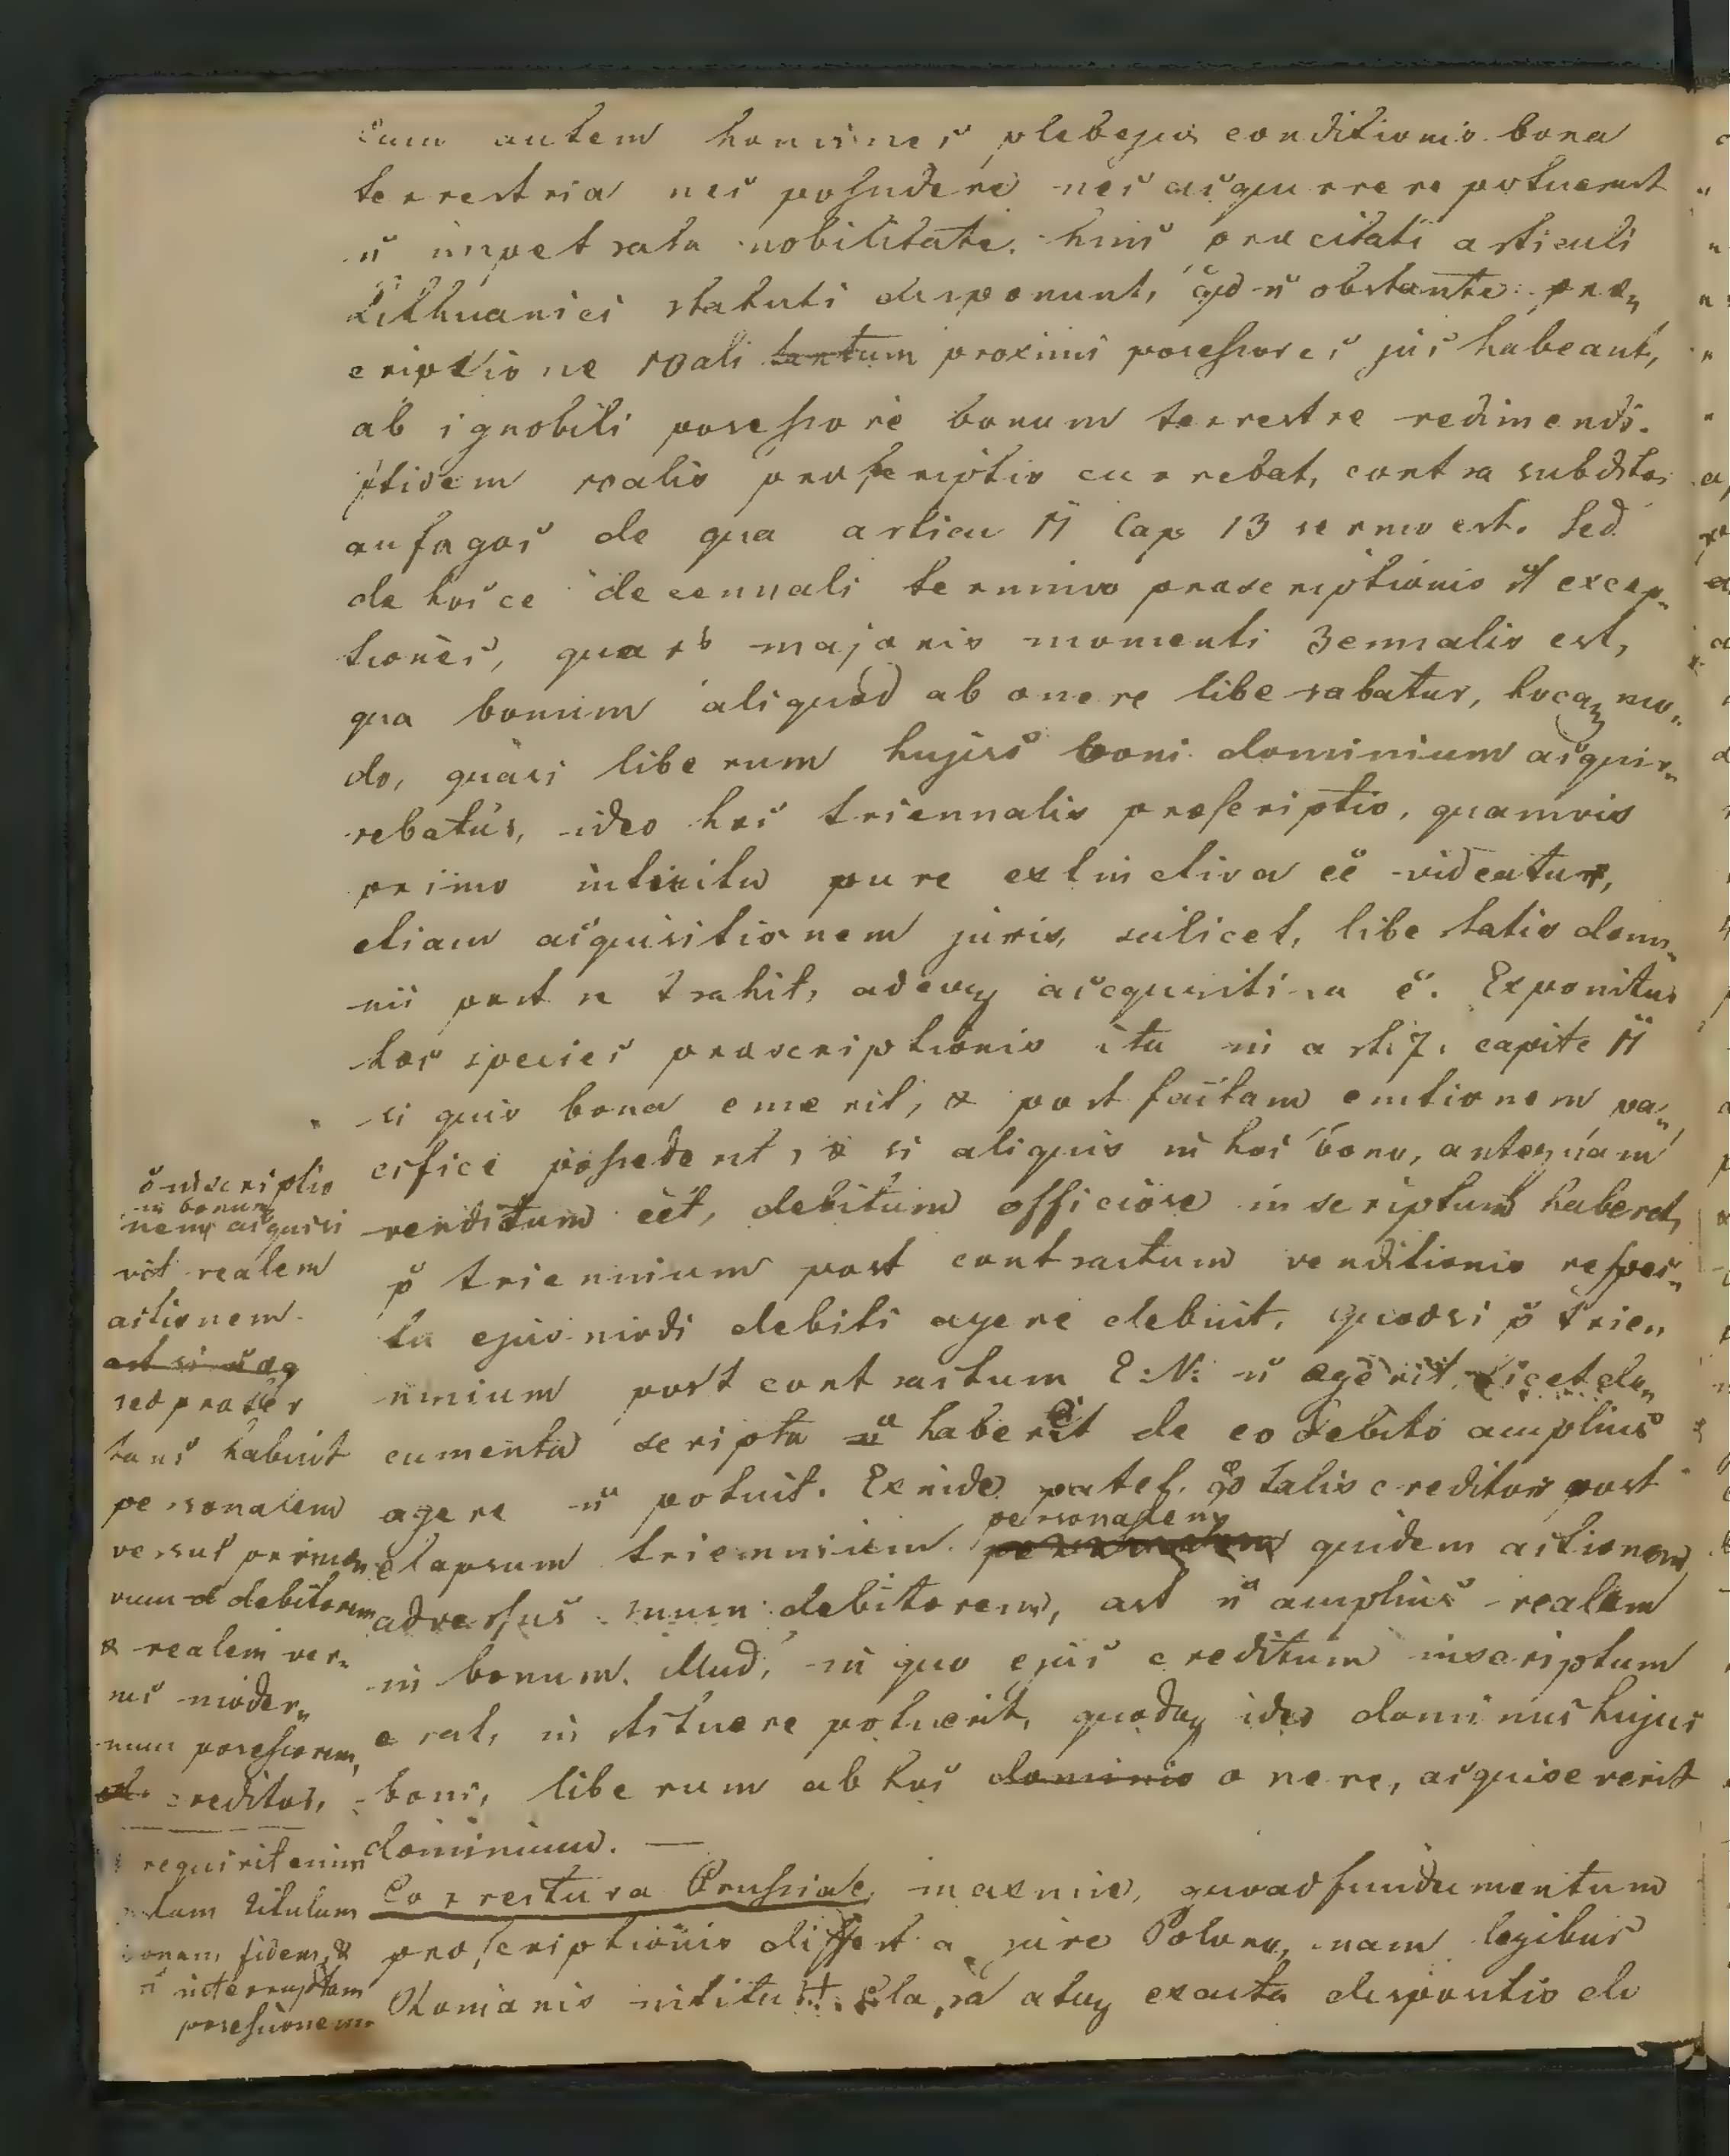 Cum autem homines plebejae conditionis bona
terrestria nec possidere nec acquirere potuerint
n̄ impetrata nobilitate. hinc praecitati articuli
Lithuanici statuti disponunt, qd n̄ obstante praes
criptione tali tantum proximi possessores jus habeant,
ab ignobili possessore bonum terrestre redimendi.
Itidem talis praescriptio currebat, contra subditos
aufugos de qua articu 12 Cap 13 sermo est. Sed
de hocce decennali termino praescriptionis st excep-
tiones, quars majoris momenti 3ennalis est,
qua bonum aliquod ab onere liberabatur, hocq mo-
do, quasi liberum hujus boni dominium acqui-
rebatur, ideo hec triennalis praescriptio, quamvis
primo intuitu pure extinctiva ee videatur,
etiam acquisitionem juris, scilicet, libertatis domi-
nii post se trahit, adeoq acquisitiva e. Exponitur
hec species praescriptionis ita in arti 7. capite 11
si quis bona emerit, & post factam emtionem pa-
cifice possederit, & si aliquis in hoc bono, antequam
venditum eet, debitum officiose inscriptum haberet,
p triennium post contractum venditionis respec-
tu ejusmodi debiti agere debuit, quodsi p trien
nnium post contractum E:N: n̄ egerit, licet do-
cumenta scripta n̄ haberet de eo debito amplius
agere n̄ potuit. Exinde patet, qd talis creditor post
elapsum triennium personalem quidem actionem
adversus suum debitorem, ast n̄ amplius realem
in bonum. illud, in quo ejus creditum inscriptum
erat, instituere potuerit, quodq ideo dominus hujus
boni, liberum ab hoc dominio onere, acquisererit
dominium. —
Correctura Prussiae, maxime, quoad fundamentum
praescriptionis differt a jure Polono, nam legibus
Romanis nititur. Clara atq exacta dispositio de
inscriptio
in bonum
nemq acquisi
vit realem
actionem.
ast si n̄ ag
sed praeter
tans habuit
personalem
versus primum
rum d debitorem
& realem ver-
sus moder-
num possessorem,
creditor,
requirit enim
titulum
bonam fidem, &
n̄ interruptam
possessionem.